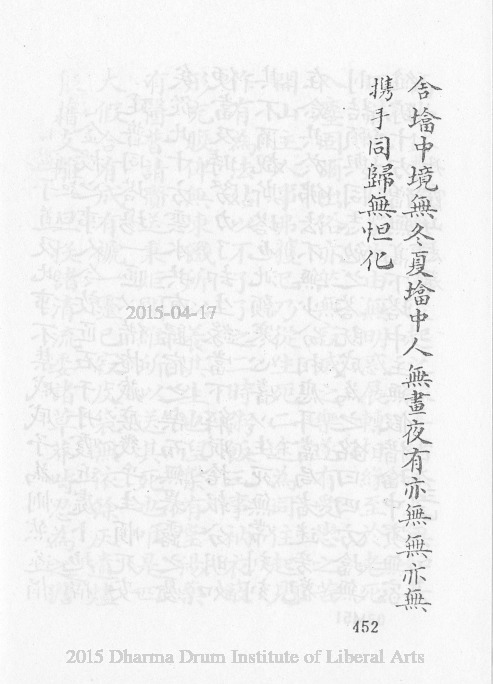 舎墖中境無冬夏墖中人無晝夜有亦無無亦無
携手同歸無怛化
2015-04-17
452
2015 Dharma Drum Institute of Liberal Arts